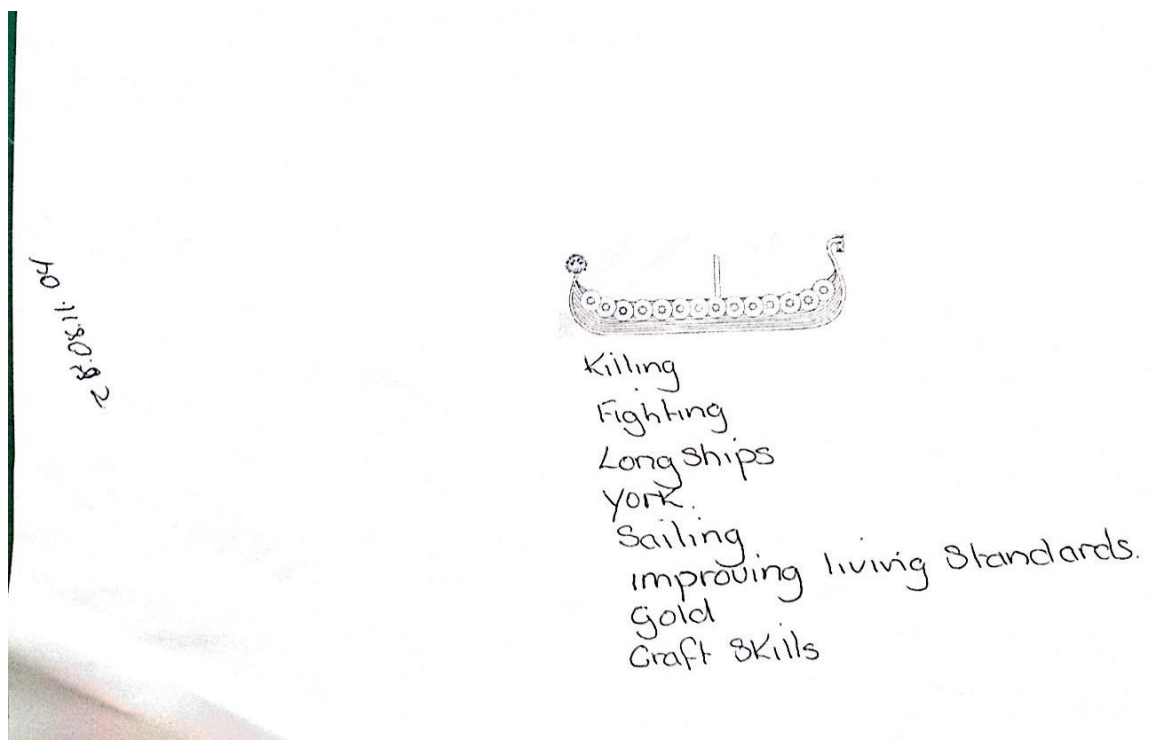 28.08.11. 04
Killing
Fighting
Longships
York.
Sailing
improving living standards.
gold
Craft Skills